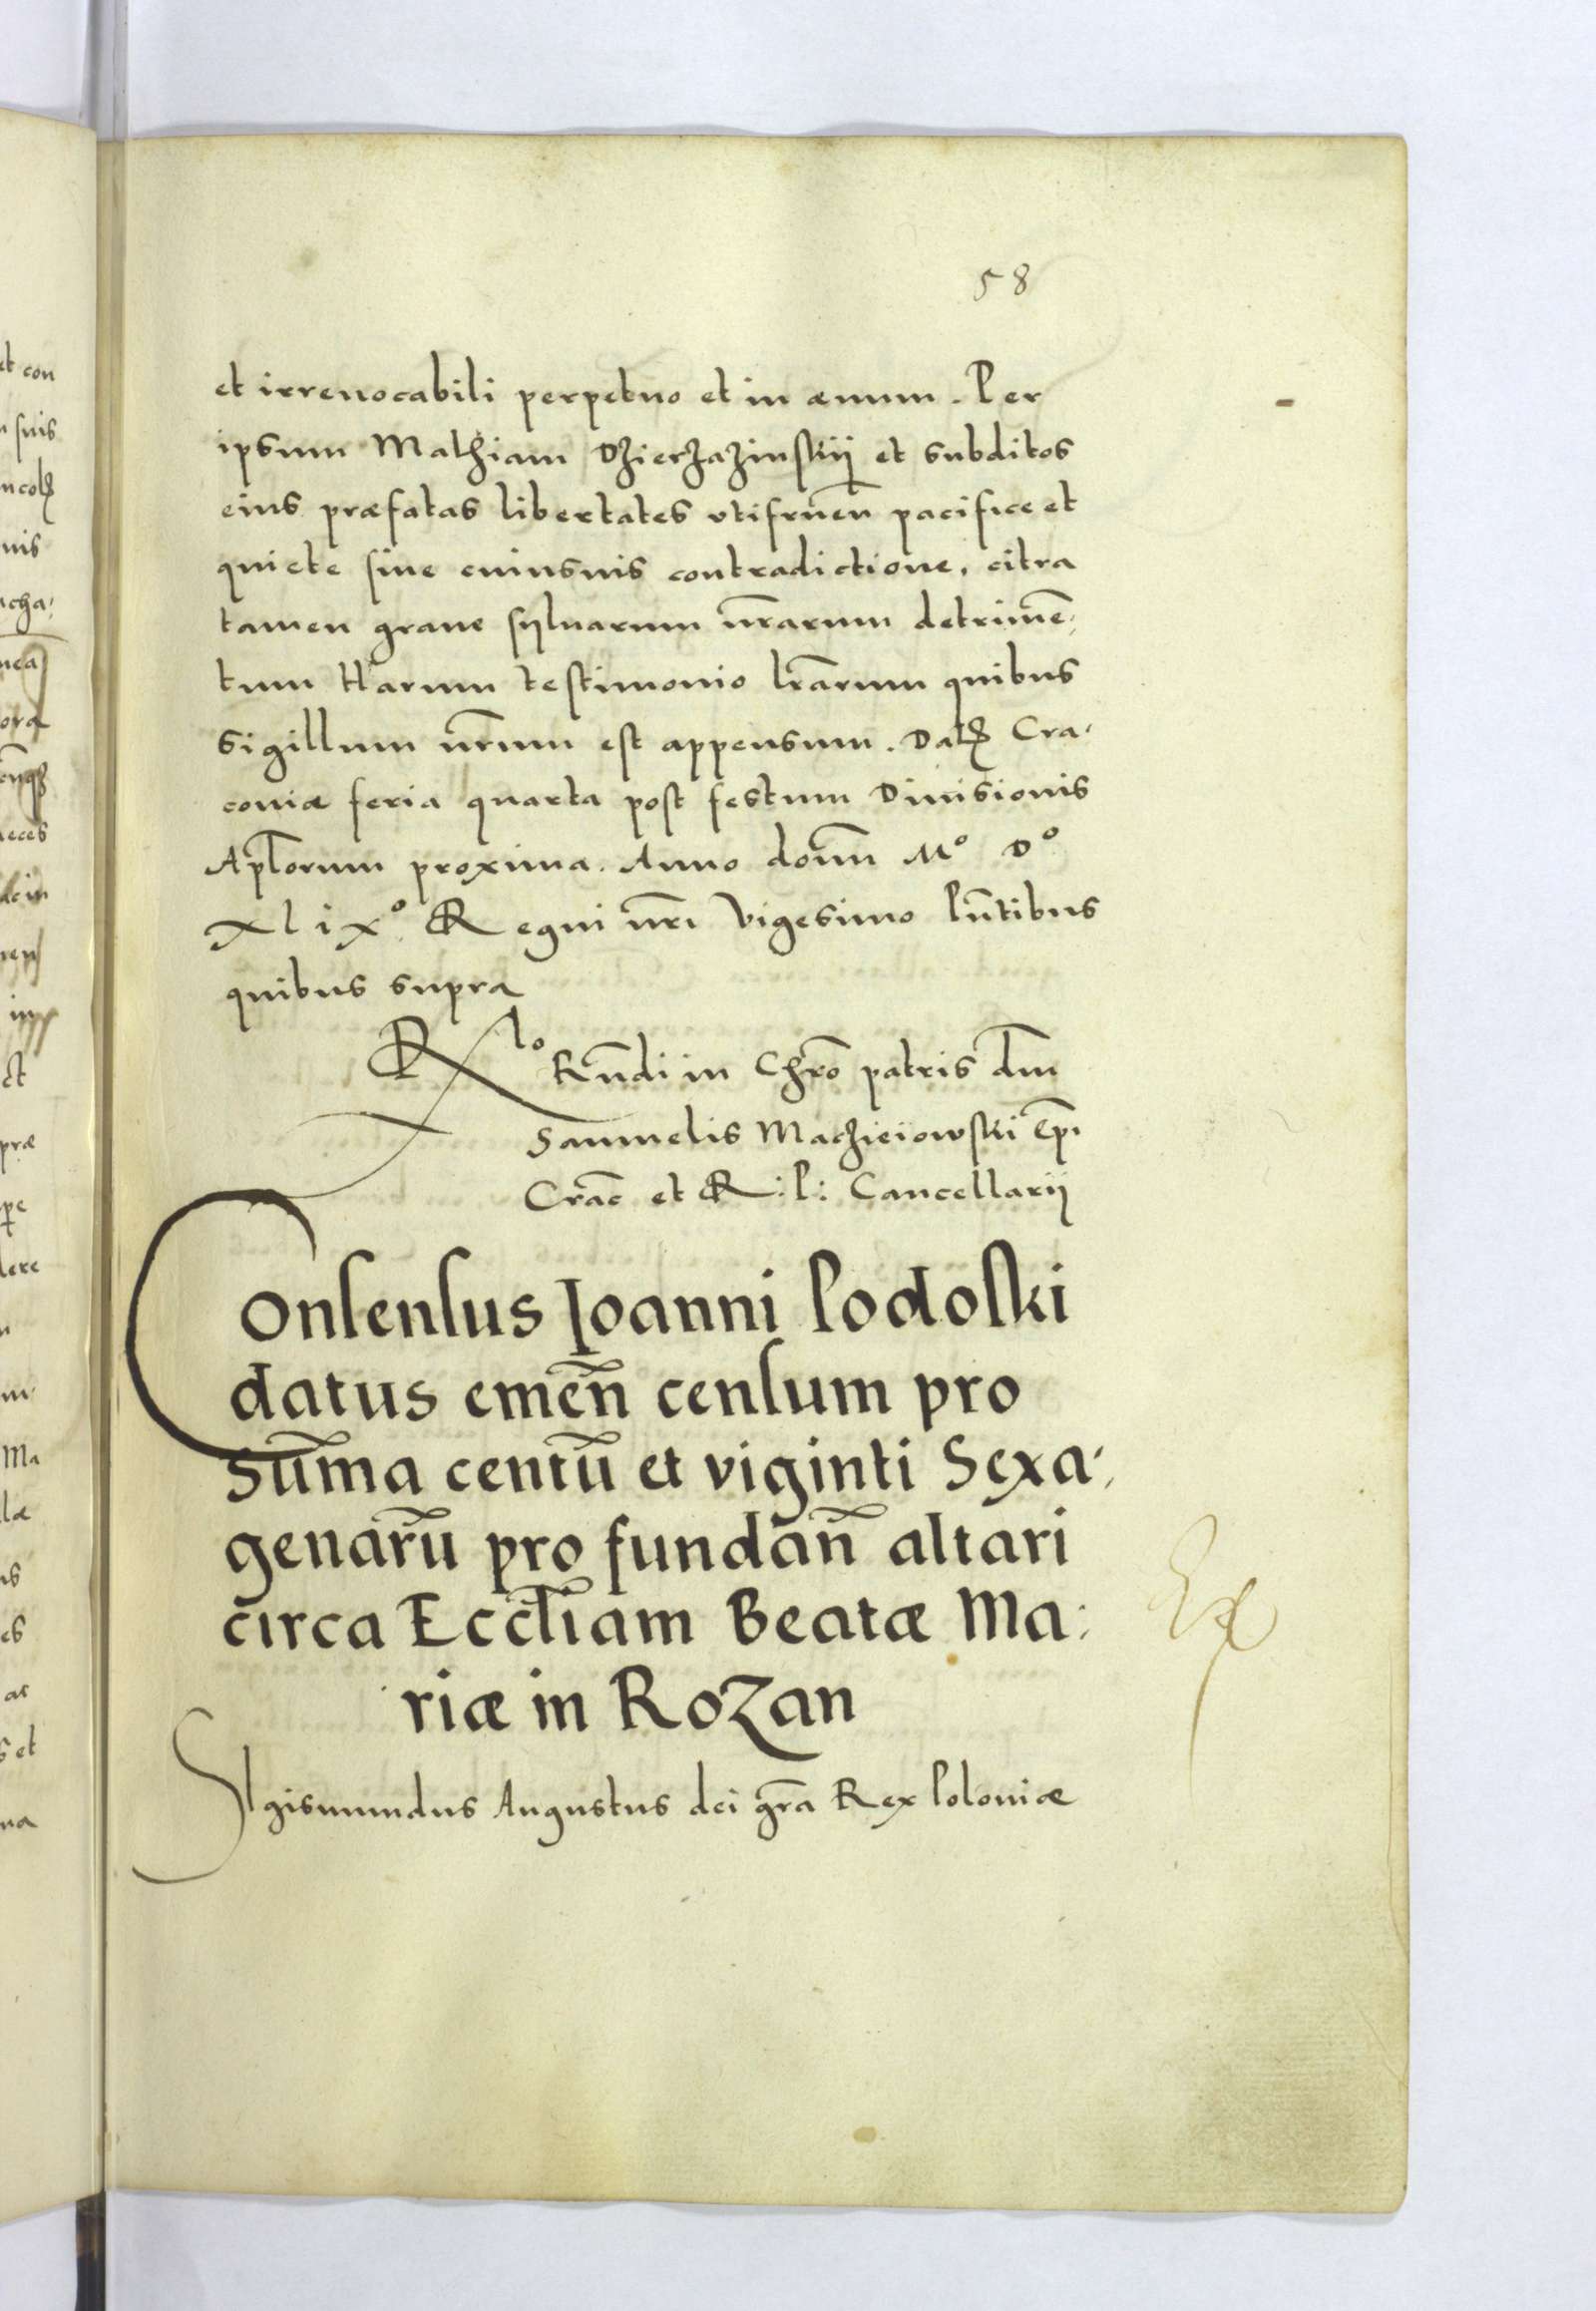 58
et irreuocabili perpetuo et in æuum. Per
ipsum Mathiam Dzierzazinskij et subditos
eius præfatas libertates vtifruen̄ pacifice et
quiete siue cuiusuis contradictione, citra
tamen graue syluarum nr̄arum detrimē,
tum Harum testimonio lr̄arum quibus
sigillum nr̄um est appensum. Datꝫ Cra,
couiæ feria quarta post festum Diuisionis
Apl̄orum proxima. Anno domī M° D°
Xlix° Regni nr̄i Vigesimo Pn̄tibus
quibus supra
Rlo Rn̄di in Chr̄o patris dn̄i
Samuelis Maczieiowski Ep̄i
Crac̄ et R: P: Cancellarij
Consensus Ioanni Podoski
datus emen̄ censum pro
Sūma centū et viginti Sexa,
genarū pro fundan̄ altari
circa Eccl̄iam Beatæ Ma:
riæ in Rozan
SIgismundus Augustus dei gr̄a Rex Poloniæ